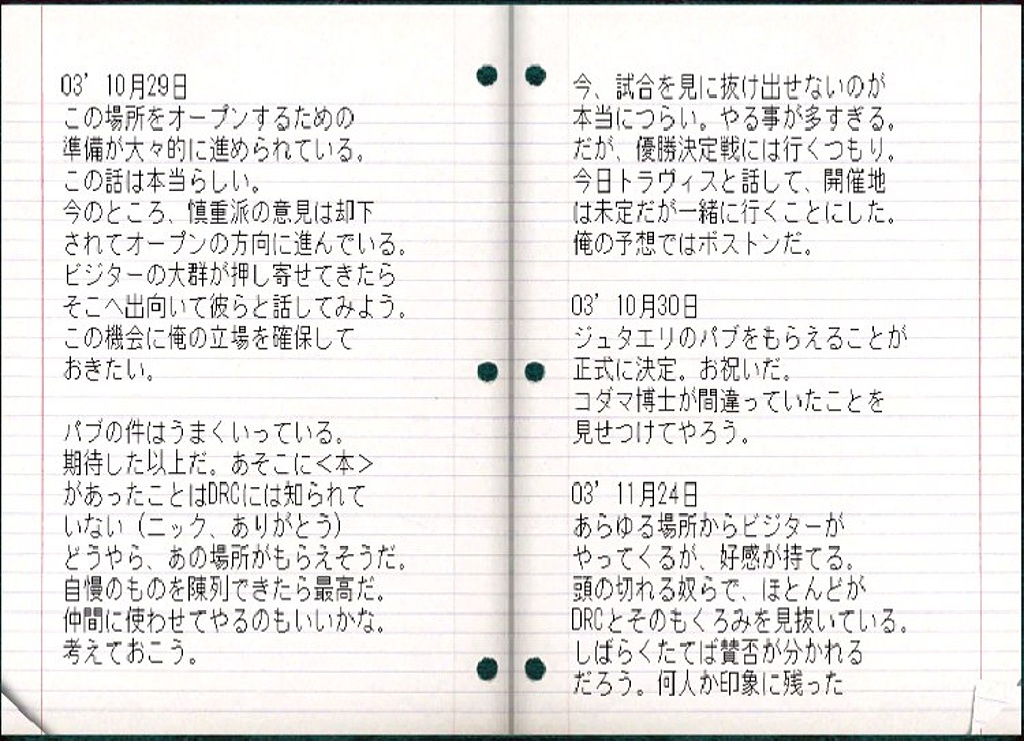 03’ 10月29日
この場所をオープンするための
準備が大々的に進められている。
この話は本当らしい。
今のところ、慎重派の意見は却下
されてオープンの方向に進んでいる。
ビジターの大群が押し寄せてきたら
そこへ出向いて彼らと話してみよう。
この機会に俺の立場を確保して
おきたい。
パブの件はうまくいっている。
期待した以上だ。あそこに＜本＞
があったことはDRCには知られて
いない（ニック、ありがとう）
どうやら、あの場所がもらえそうだ。
自慢のものを陳列できたら最高だ。
仲間に使わせてやるのもいいかな。
考えておこう。
今、試合を見に抜け出せないのが
本当につらい。やる事が多すぎる。
だが、優勝決定戦には行くつもり。
今日トラヴィスと話して、開催地
は未定だが一緒に行くことにした。
俺の予想ではボストンだ。
03’ 10月30日
ジュタエリのパブをもらえることが
正式に決定。お祝いだ。
コダマ博士が間違っていたことを
見せつけてやろう。
03’ 11月24日
あらゆる場所からビジターが
やってくるが、好感が持てる。
頭の切れる奴らで、ほとんどが
DRCとそのもくろみを見抜いている。
しばらくたてば賛否が分かれる
だろう。何人か印象に残った